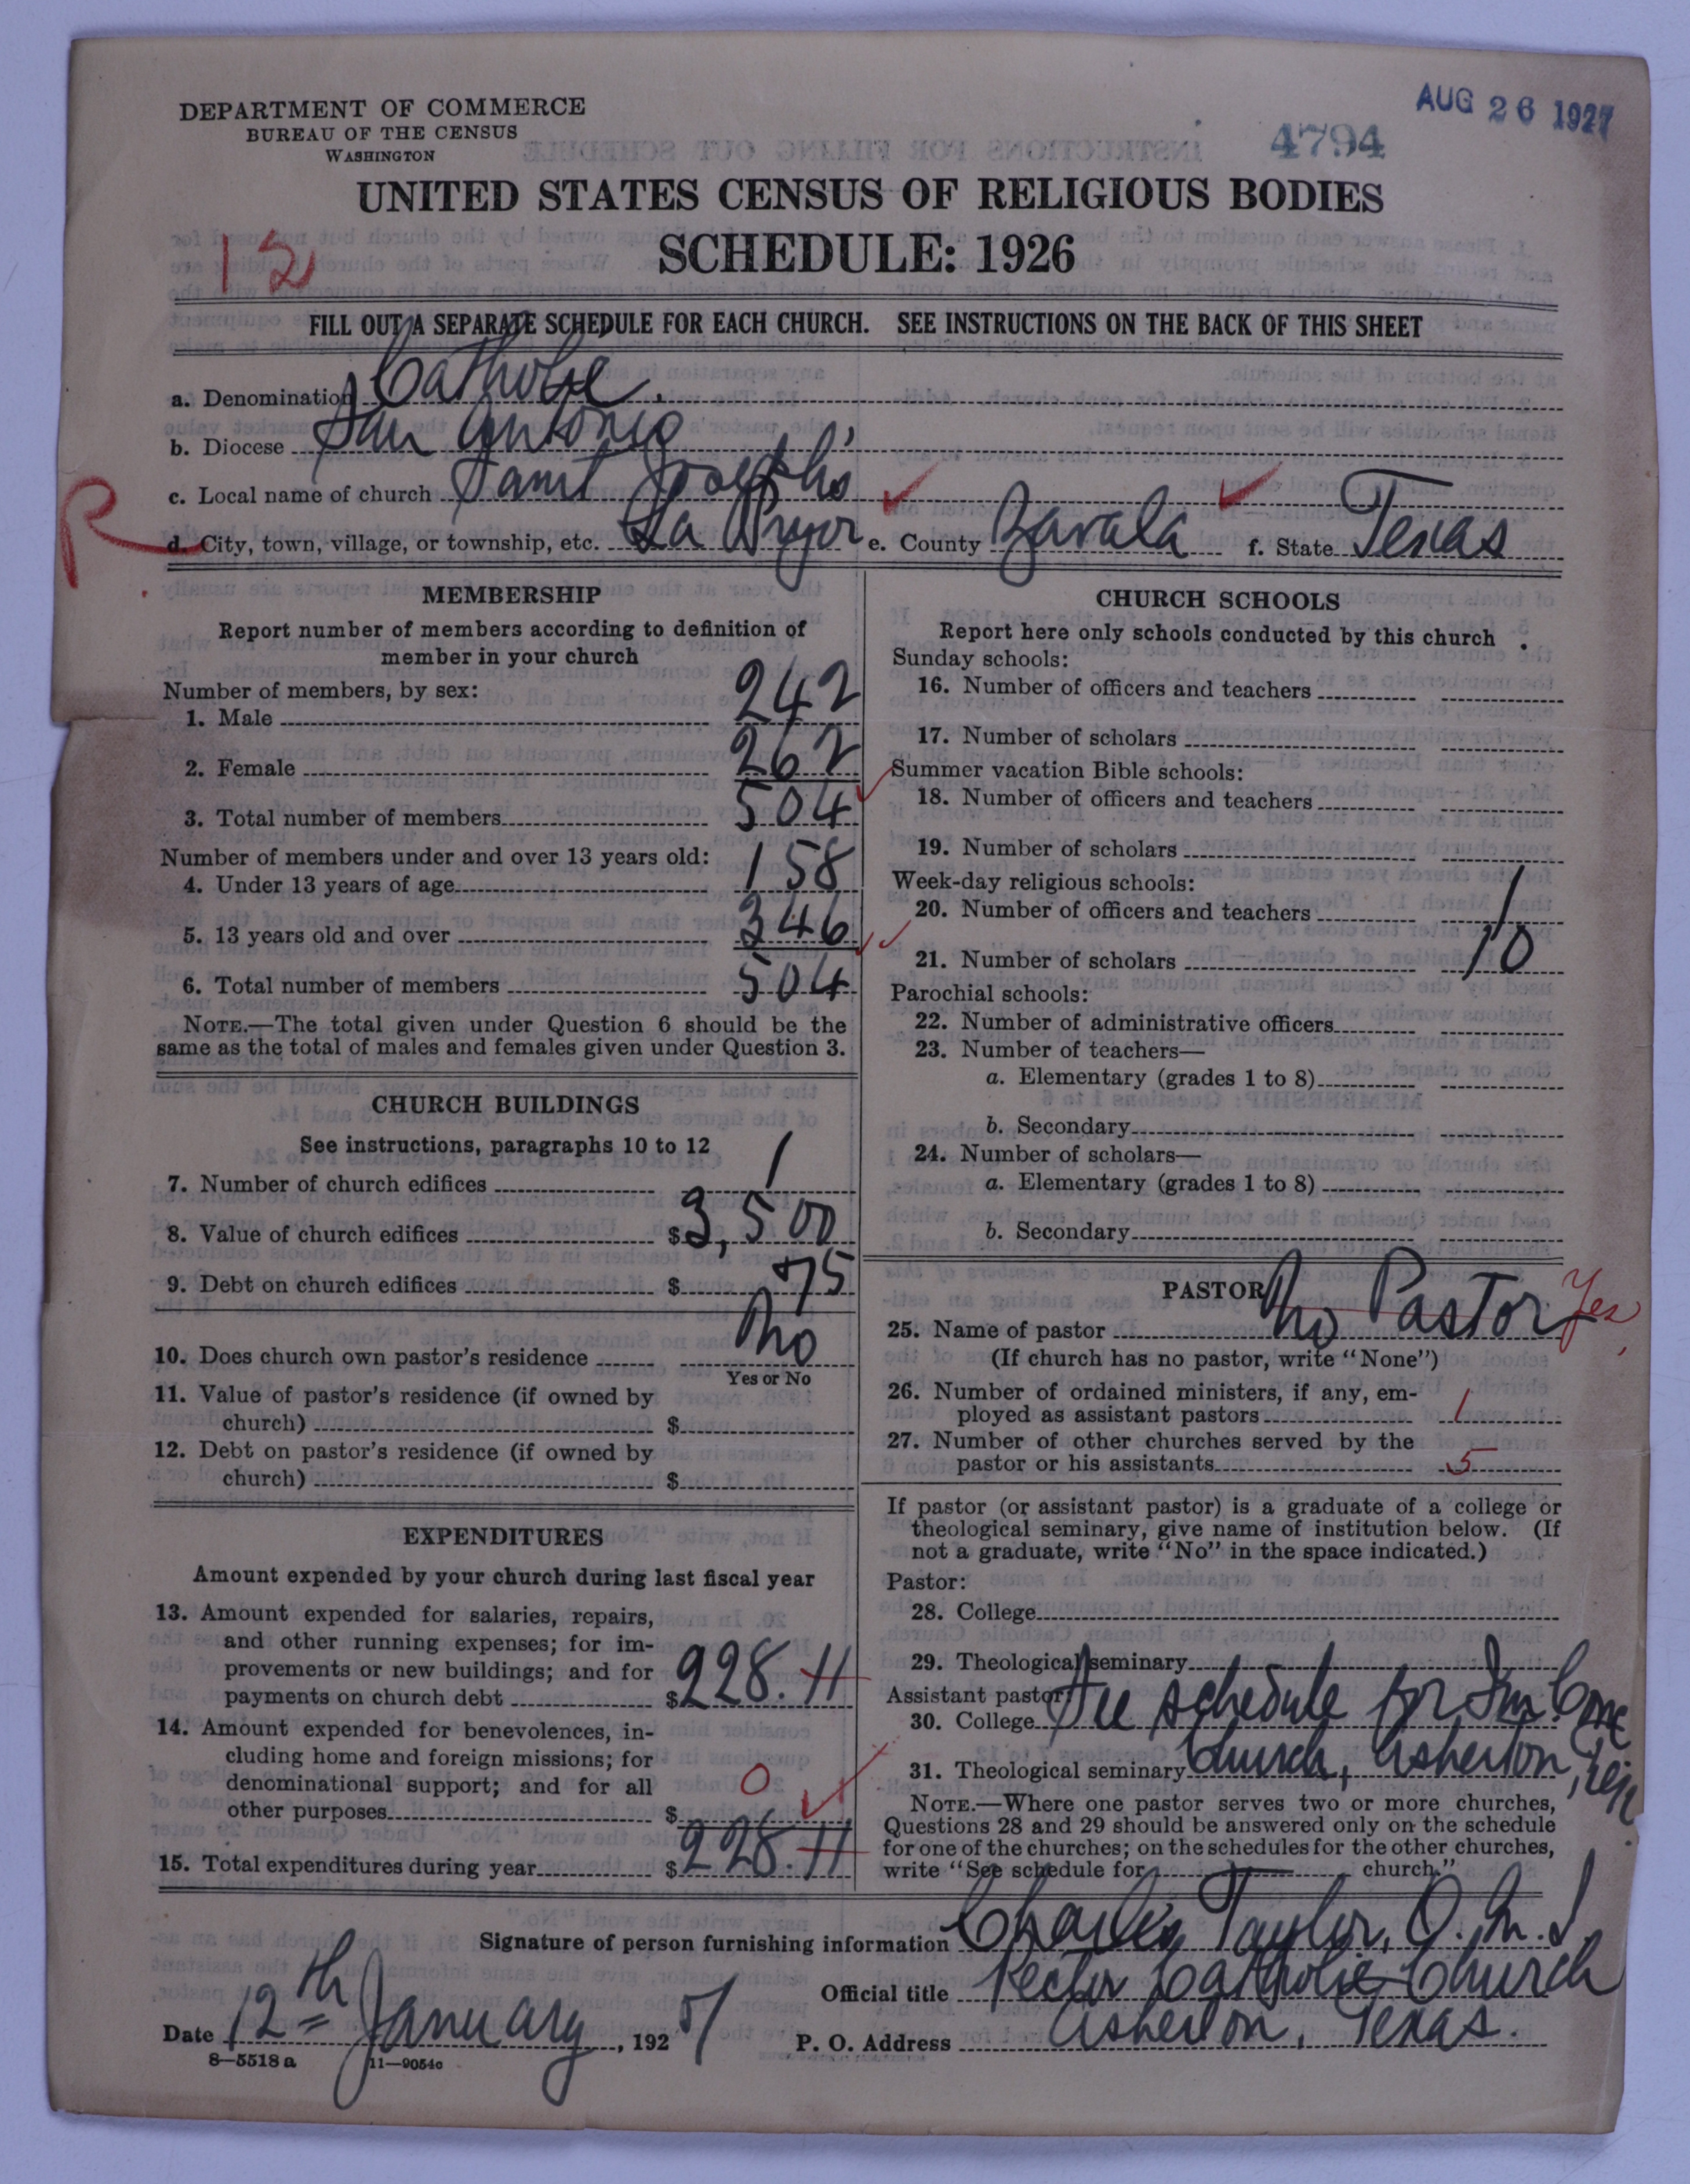 DEPARTMENT OF COMMERCE
BUREAU OF THE CENSUS
WASHINGTON
AUG 26 1927
4794
UNITED STATES CENSUS OF RELIGIOUS BODIES
SCHEDULE: 1926
12
FILL OUT A SEPARATE SCHEDULE FOR EACH CHURCH. SEE INSTRUCTIONS ON THE BACK OF THIS SHEET
a. Denomination Catholic.
b. Diocese San Antonio
c. Local name of church Saint Joseph's
R
d. City, town, village, or township, etc. La Pryor e. County Zavala f. State Texas
MEMBERSHIP
Report number of members according to definition of
member in your church
Number of members, by sex:
1. Male 242
2. Female 262
3. Total number of members 504
Number of members under and over 13 years old:
4. Under 13 years of age 158
5. 13 years old and over 346
6. Total number of members 504
NOTE.—The total given under Question 6 should be the
same as the total of males and females given under Question 3.
CHURCH BUILDINGS
See instructions, paragraphs 10 to 12
7. Number of church edifices 1
8. Value of church edifices $3,500
9. Debt on church edifices $ 75
10. Does church own pastor's residence No
Yes or No
11. Value of pastor's residence (if owned by
church) $
12. Debt on pastor's residence (if owned by
church) $
EXPENDITURES
Amount expended by your church during last fiscal year
13. Amount expended for salaries, repairs,
and other running expenses; for im-
provements or new buildings; and for
payments on church debt $228.11
14. Amount expended for benevolences, in-
cluding home and foreign missions; for
denominational support; and for all
other purposes $ 0
15. Total expenditures during year $228.11
CHURCH SCHOOLS
Report here only schools conducted by this church
Sunday schools:
16. Number of officers and teachers
17. Number of scholars
Summer vacation Bible schools:
18. Number of officers and teachers
19. Number of scholars
Week-day religious schools:
20. Number of officers and teachers 1
21. Number of scholars 10
Parochial schools:
22. Number of administrative officers
23. Number of teachers—
a. Elementary (grades 1 to 8)
b. Secondary
24. Number of scholars—
a. Elementary (grades 1 to 8)
b. Secondary
PASTOR
25. Name of pastor No Pastor Yes
(If church has no pastor, write "None")
26. Number of ordained ministers, if any, em-
ployed as assistant pastors 1
27. Number of other churches served by the
pastor or his assistants 5
If pastor (or assistant pastor) is a graduate of a college or
theological seminary, give name of institution below. (If
not a graduate, write "No" in the space indicated.)
Pastor:
28. College
29. Theological seminary
Assistant pastor:
30. College See schedule for Im. Conc
31. Theological seminary Church, Asherton, Tex.
NOTE.—Where one pastor serves two or more churches,
Questions 28 and 29 should be answered only on the schedule
for one of the churches; on the schedules for the other churches,
write "See schedule for church."
Signature of person furnishing information Charles Taylor, O.M.I.
Official title Rector Catholic Church
Date 12th January, 1927 P. O. Address Asherton, Texas.
8—5518 a 11—9054c